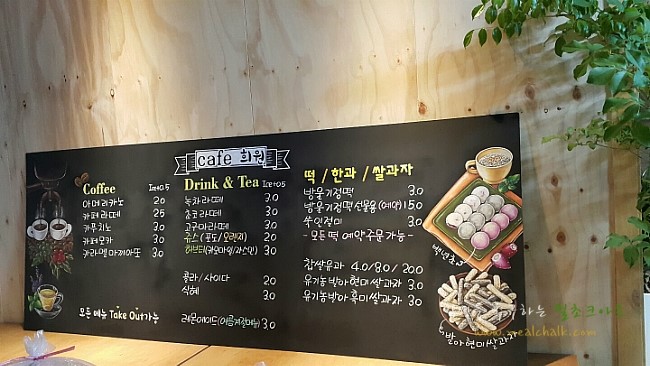 cafe 희원
Coffee Ice+0.5
아메리카노 2.0
카페라떼 2.5
카푸치노 3.0
카페모카 3.0
카라멜마끼아또 3.0
모든 메뉴 Take Out 가능
Drink & Tea Ice+0.5
녹차라떼 3.0
초코라떼 3.0
고구마라떼 3.0
쥬스(포도/오렌지) 2.0
허브티(카모마일/라스밋) 3.0
콜라/사이다 2.0
식혜 3.0
레몬에이드(여름계절메뉴) 3.0
떡/한과/쌀과자
방울기정떡 3.0
방울기정떡 선물용(예약) 15.0
쑥인절미 3.0
- 모든 떡 예약주문 가능 -
찹쌀유과 4.0/8.0/20.0
유기농발아현미쌀과자 3.0
유기농발아흑미쌀과자 3.0
백년초
발아현미쌀과자
하는 밀초크아트
www.mealchalk.com